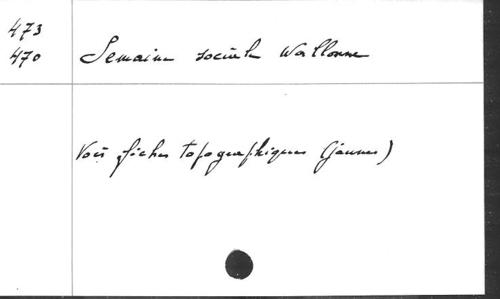 473
470 Semaine sociale Wallonne
Voir fiches topographiques (jaunes)